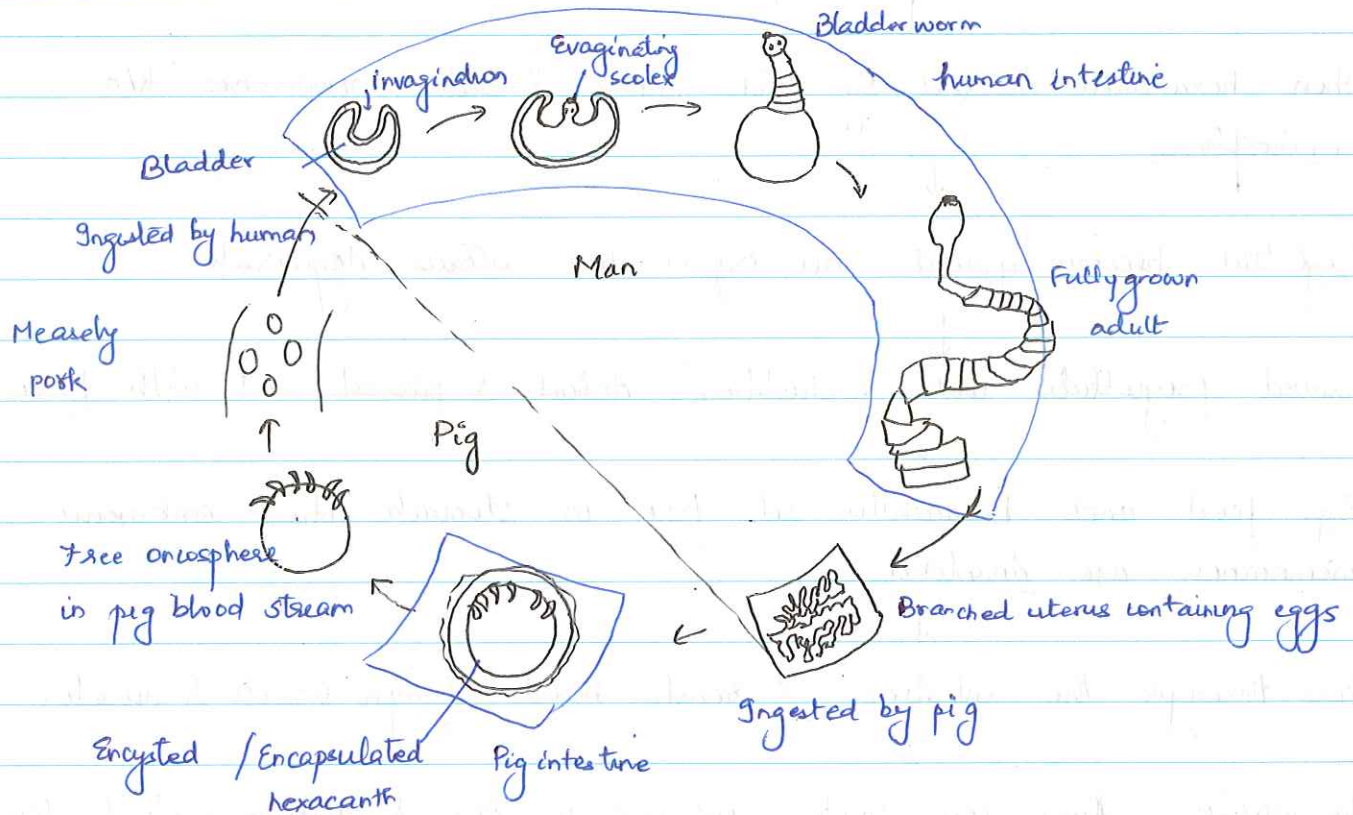 Bladder worm
Evaginating
scolex
invagination
human intestine
Bladder
Ingested by human
Man
Fully grown
adult
Measely
pork
Pig
Free oncosphere
in pig blood stream
Branched uterus containing eggs
Ingested by pig
Encysted / Encapsulated
hexacanth
Pig intestine